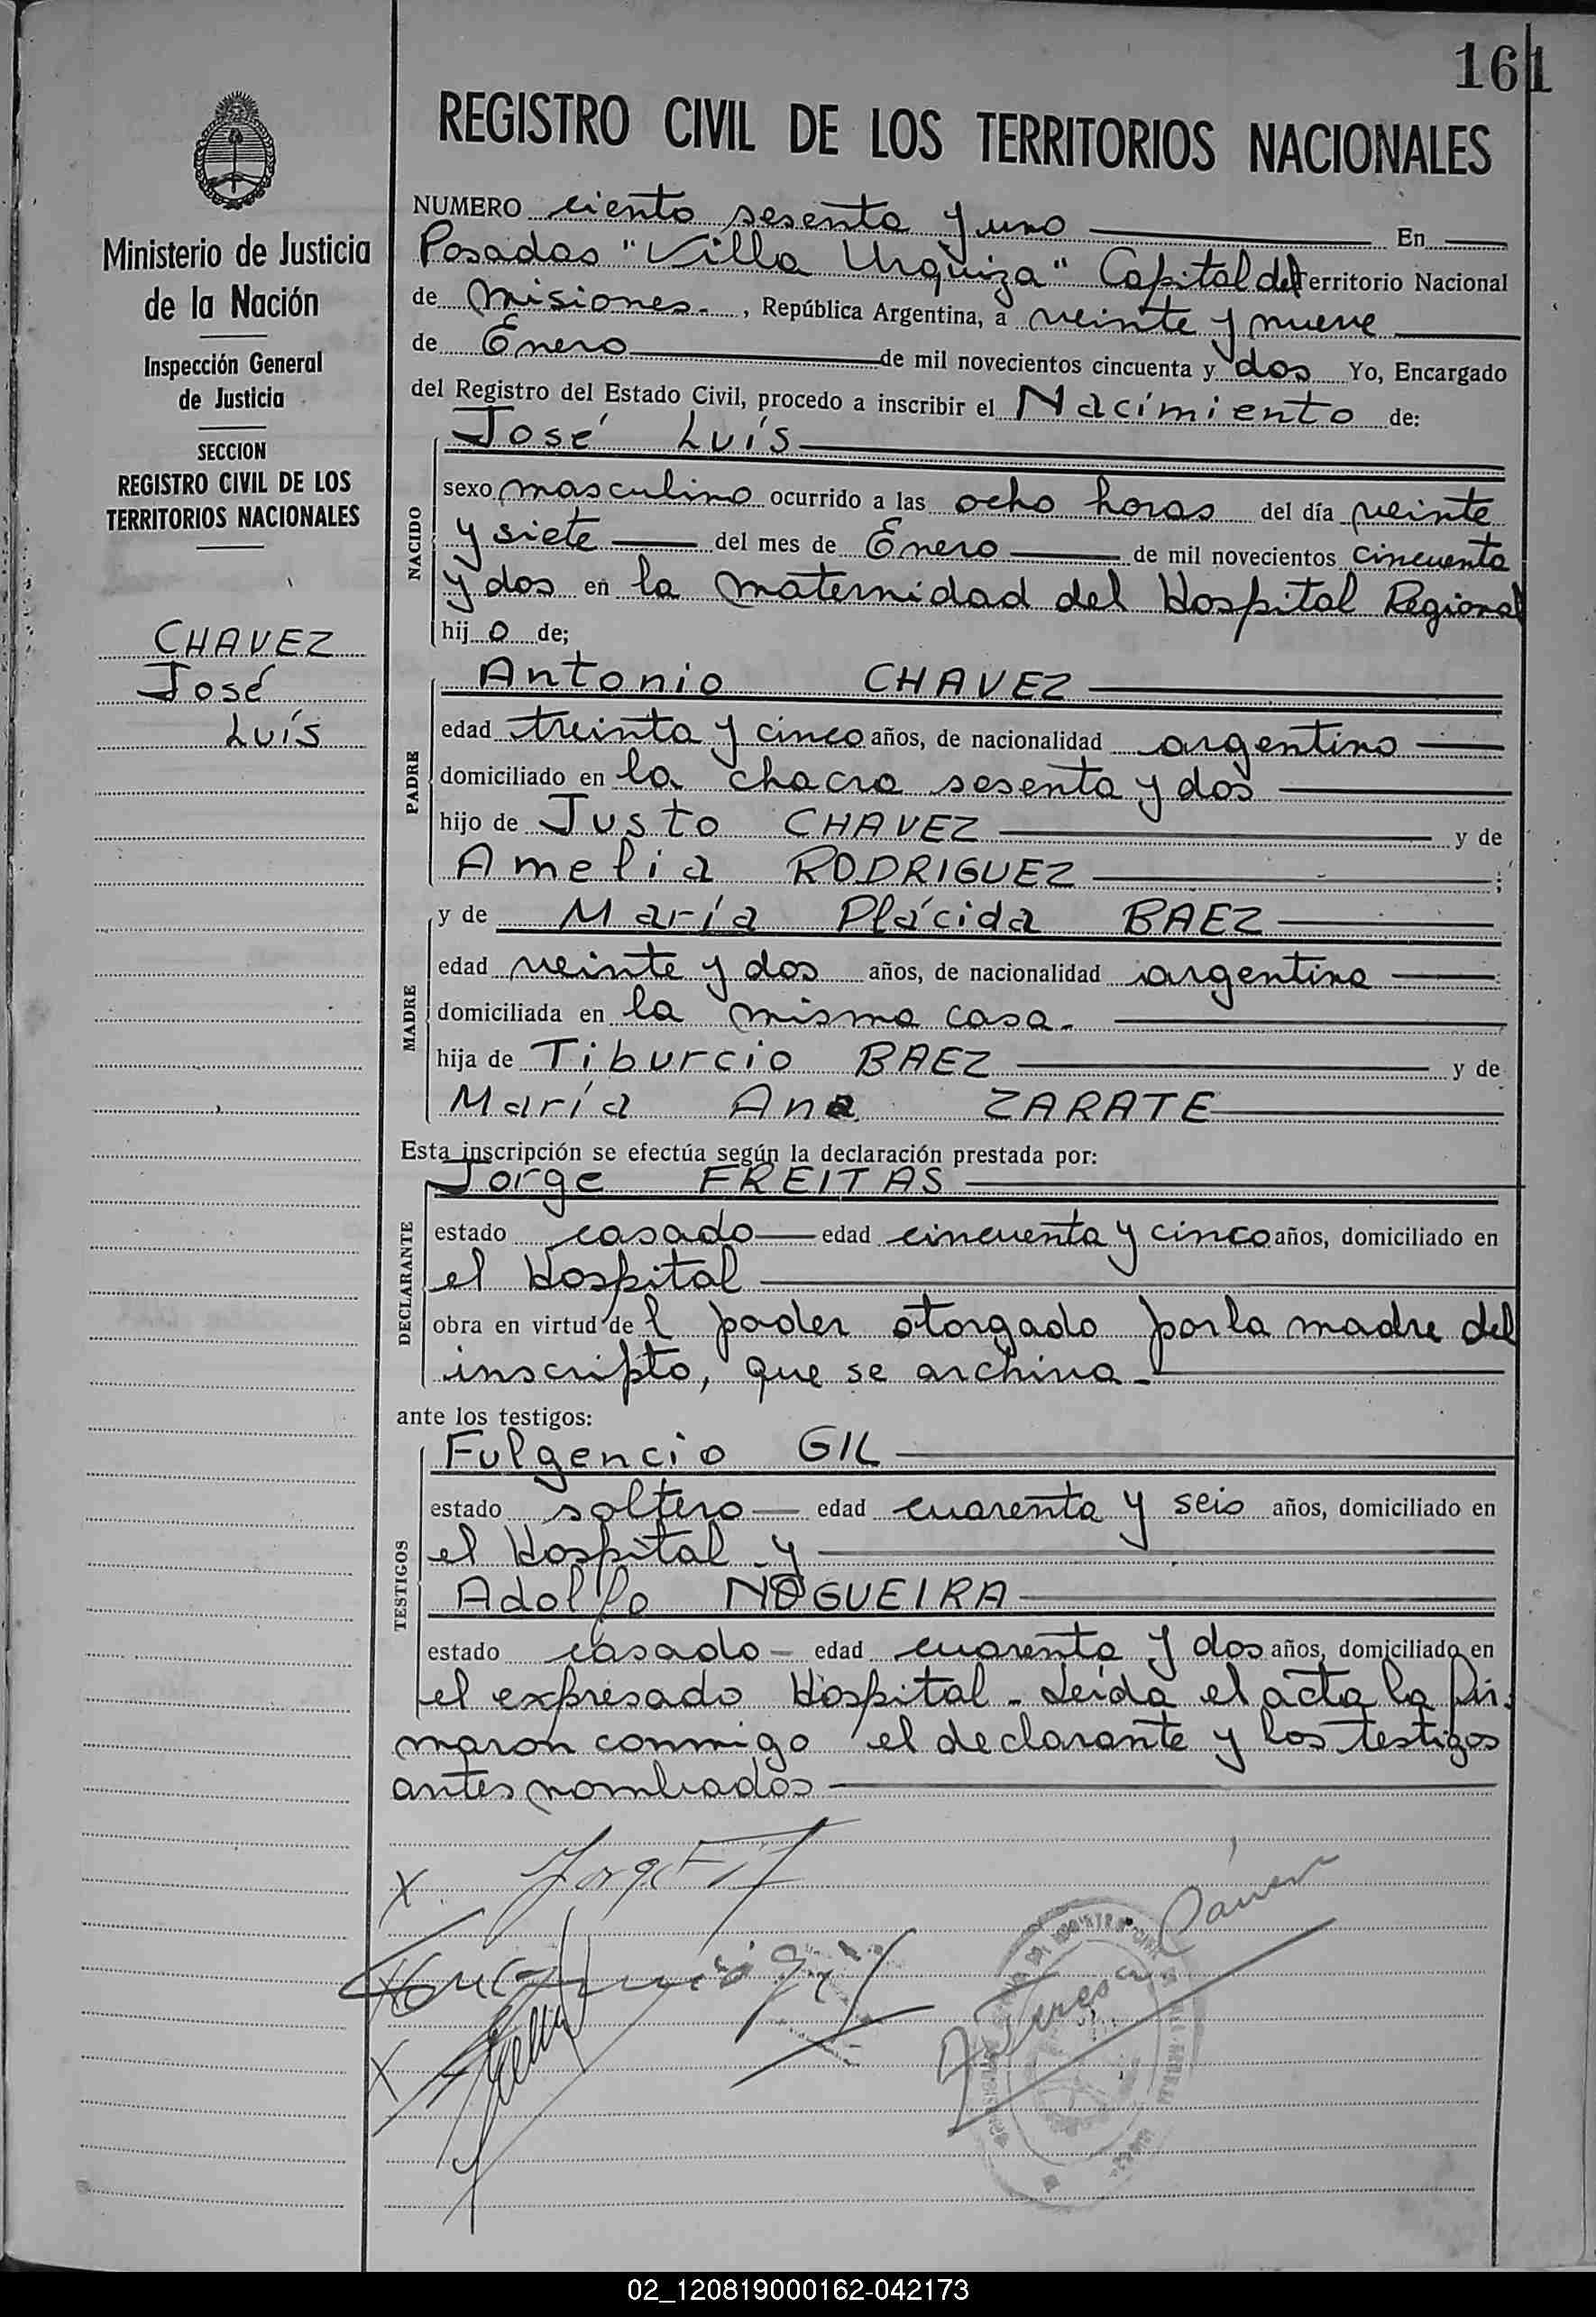 161
REGISTRO CIVIL DE LOS TERRITORIOS NACIONALES
Ministerio de Justicia
de la Nación
Inspección General
de Justicia
SECCION
REGISTRO CIVIL DE LOS
TERRITORIOS NACIONALES
CHAVEZ
José
Luís
NUMERO ciento sesenta y uno En
Posadas "Villa Urquiza" Capital del Territorio Nacional
de Misiones.- , República Argentina, a veinte y nueve
de Enero de mil novecientos cincuenta y dos Yo, Encargado
del Registro del Estado Civil, procedo a inscribir el Nacímiento de:
José Luís
NACIDO
sexo masculino ocurrido a las ocho horas del día veinte
y siete del mes de Enero de mil novecientos cincuenta
y dos en la maternidad del Hospital Regional
hij o de;
Antonio CHAVEZ
PADRE
edad treinta y cinco años, de nacionalidad argentino
domiciliado en la chacra sesenta y dos
hijo de Justo CHAVEZ y de
Amelia RODRIGUEZ ;
y de María Plácida BAEZ
MADRE
edad veinte y dos años, de nacionalidad argentina
domiciliada en la misma casa.-
hija de Tiburcio BAEZ y de
María Ana ZARATE
Esta inscripción se efectúa según la declaración prestada por:
Jorge FREITAS
DECLARANTE
estado casado edad cincuenta y cinco años, domiciliado en
el Hospital
obra en virtud de l poder otorgado por la madre del
inscripto, que se archiva.-
ante los testigos:
Fulgencio GIL
TESTIGOS
estado soltero edad cuarenta y seis años, domiciliado en
el Hospital y
Adolfo NOGUEIRA
estado casado - edad cuarenta y dos años, domiciliado en
el expresado Hospital - Leída el acta la fir-
maron conmigo el declarante y los testigos
antes nombrados
X Jorge
X
X
02_120819000162-042173